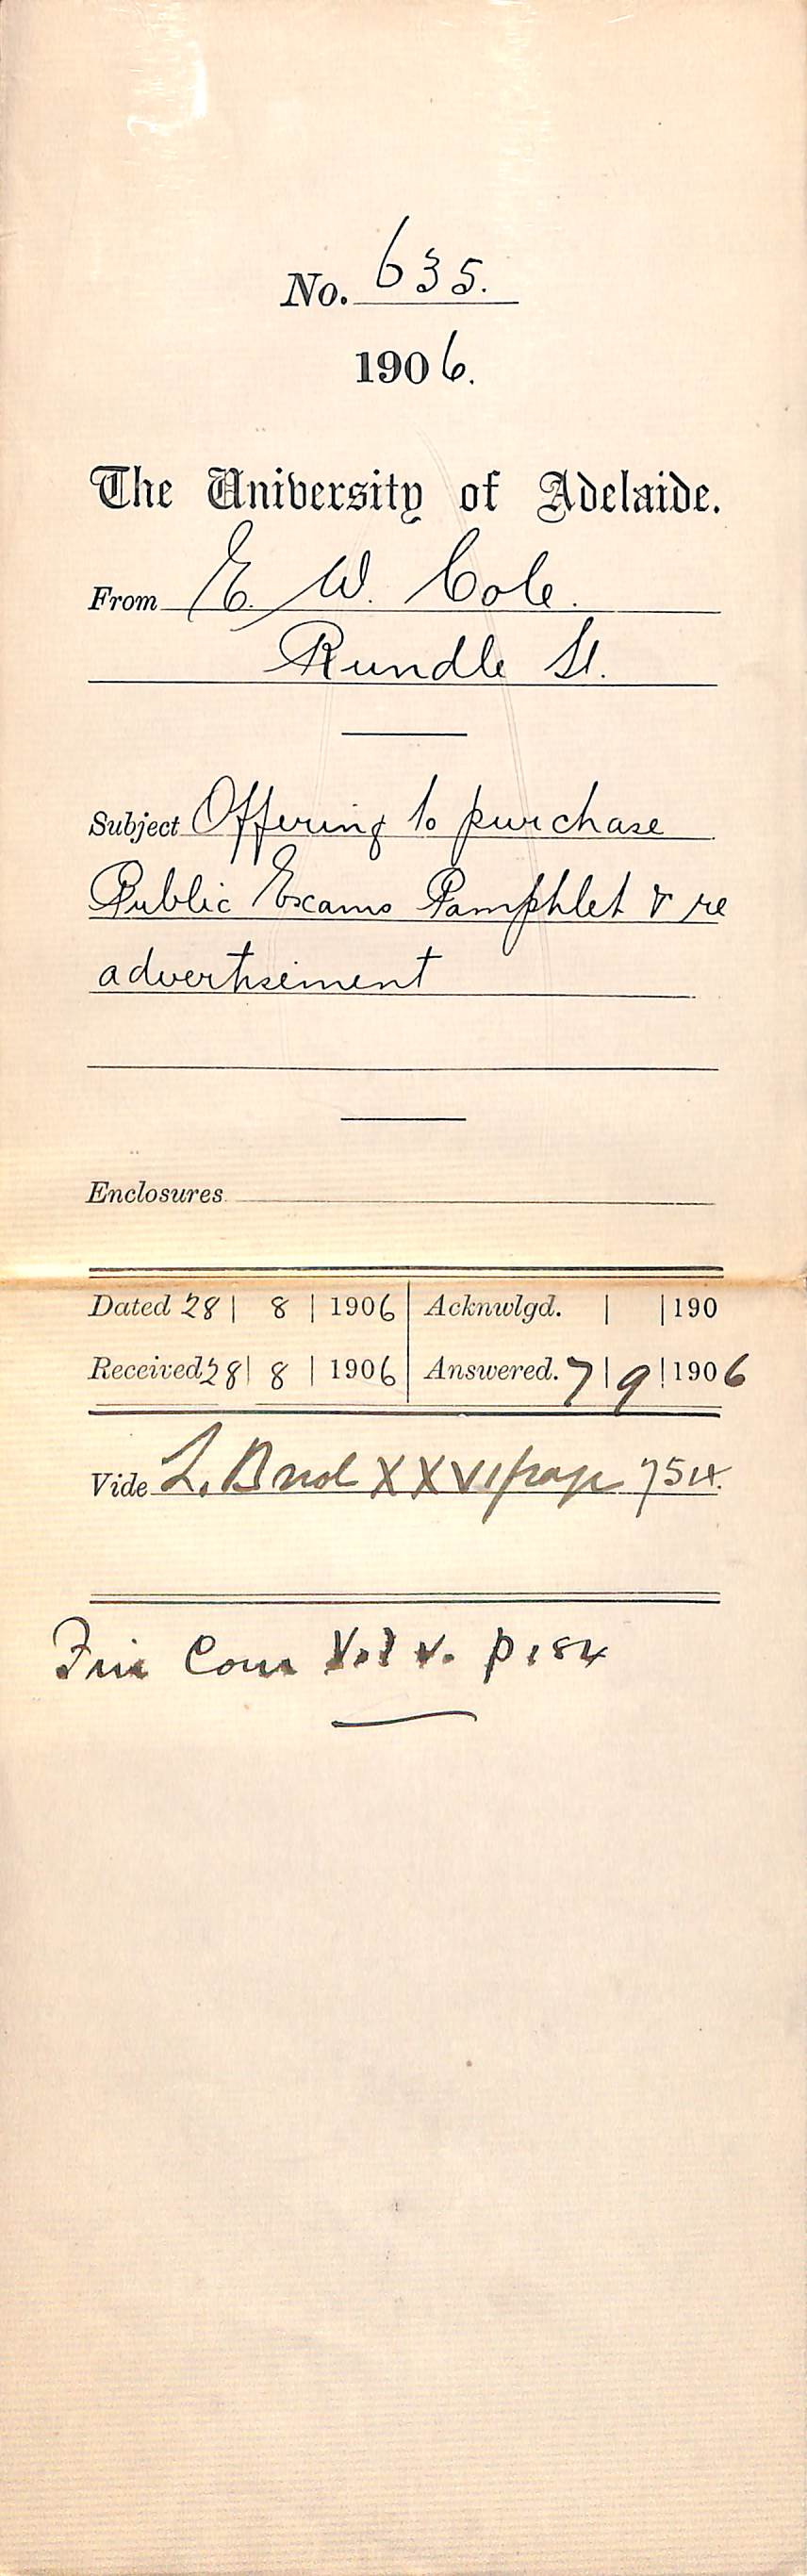 No. 635.
1906.
The University of Adelaide.
From E. W. Cole.
Rundle St.
Subject Offering to purchase
Public Exams Pamphlet & re
advertisement
Enclosures
Dated 28 | 8 | 1906 Acknwlgd. | | 190
Received 28 | 8 | 1906 Answered. 7 | 9 | 1906
Vide L. B XXVI page 754.
Fin Com Vol V. p 184